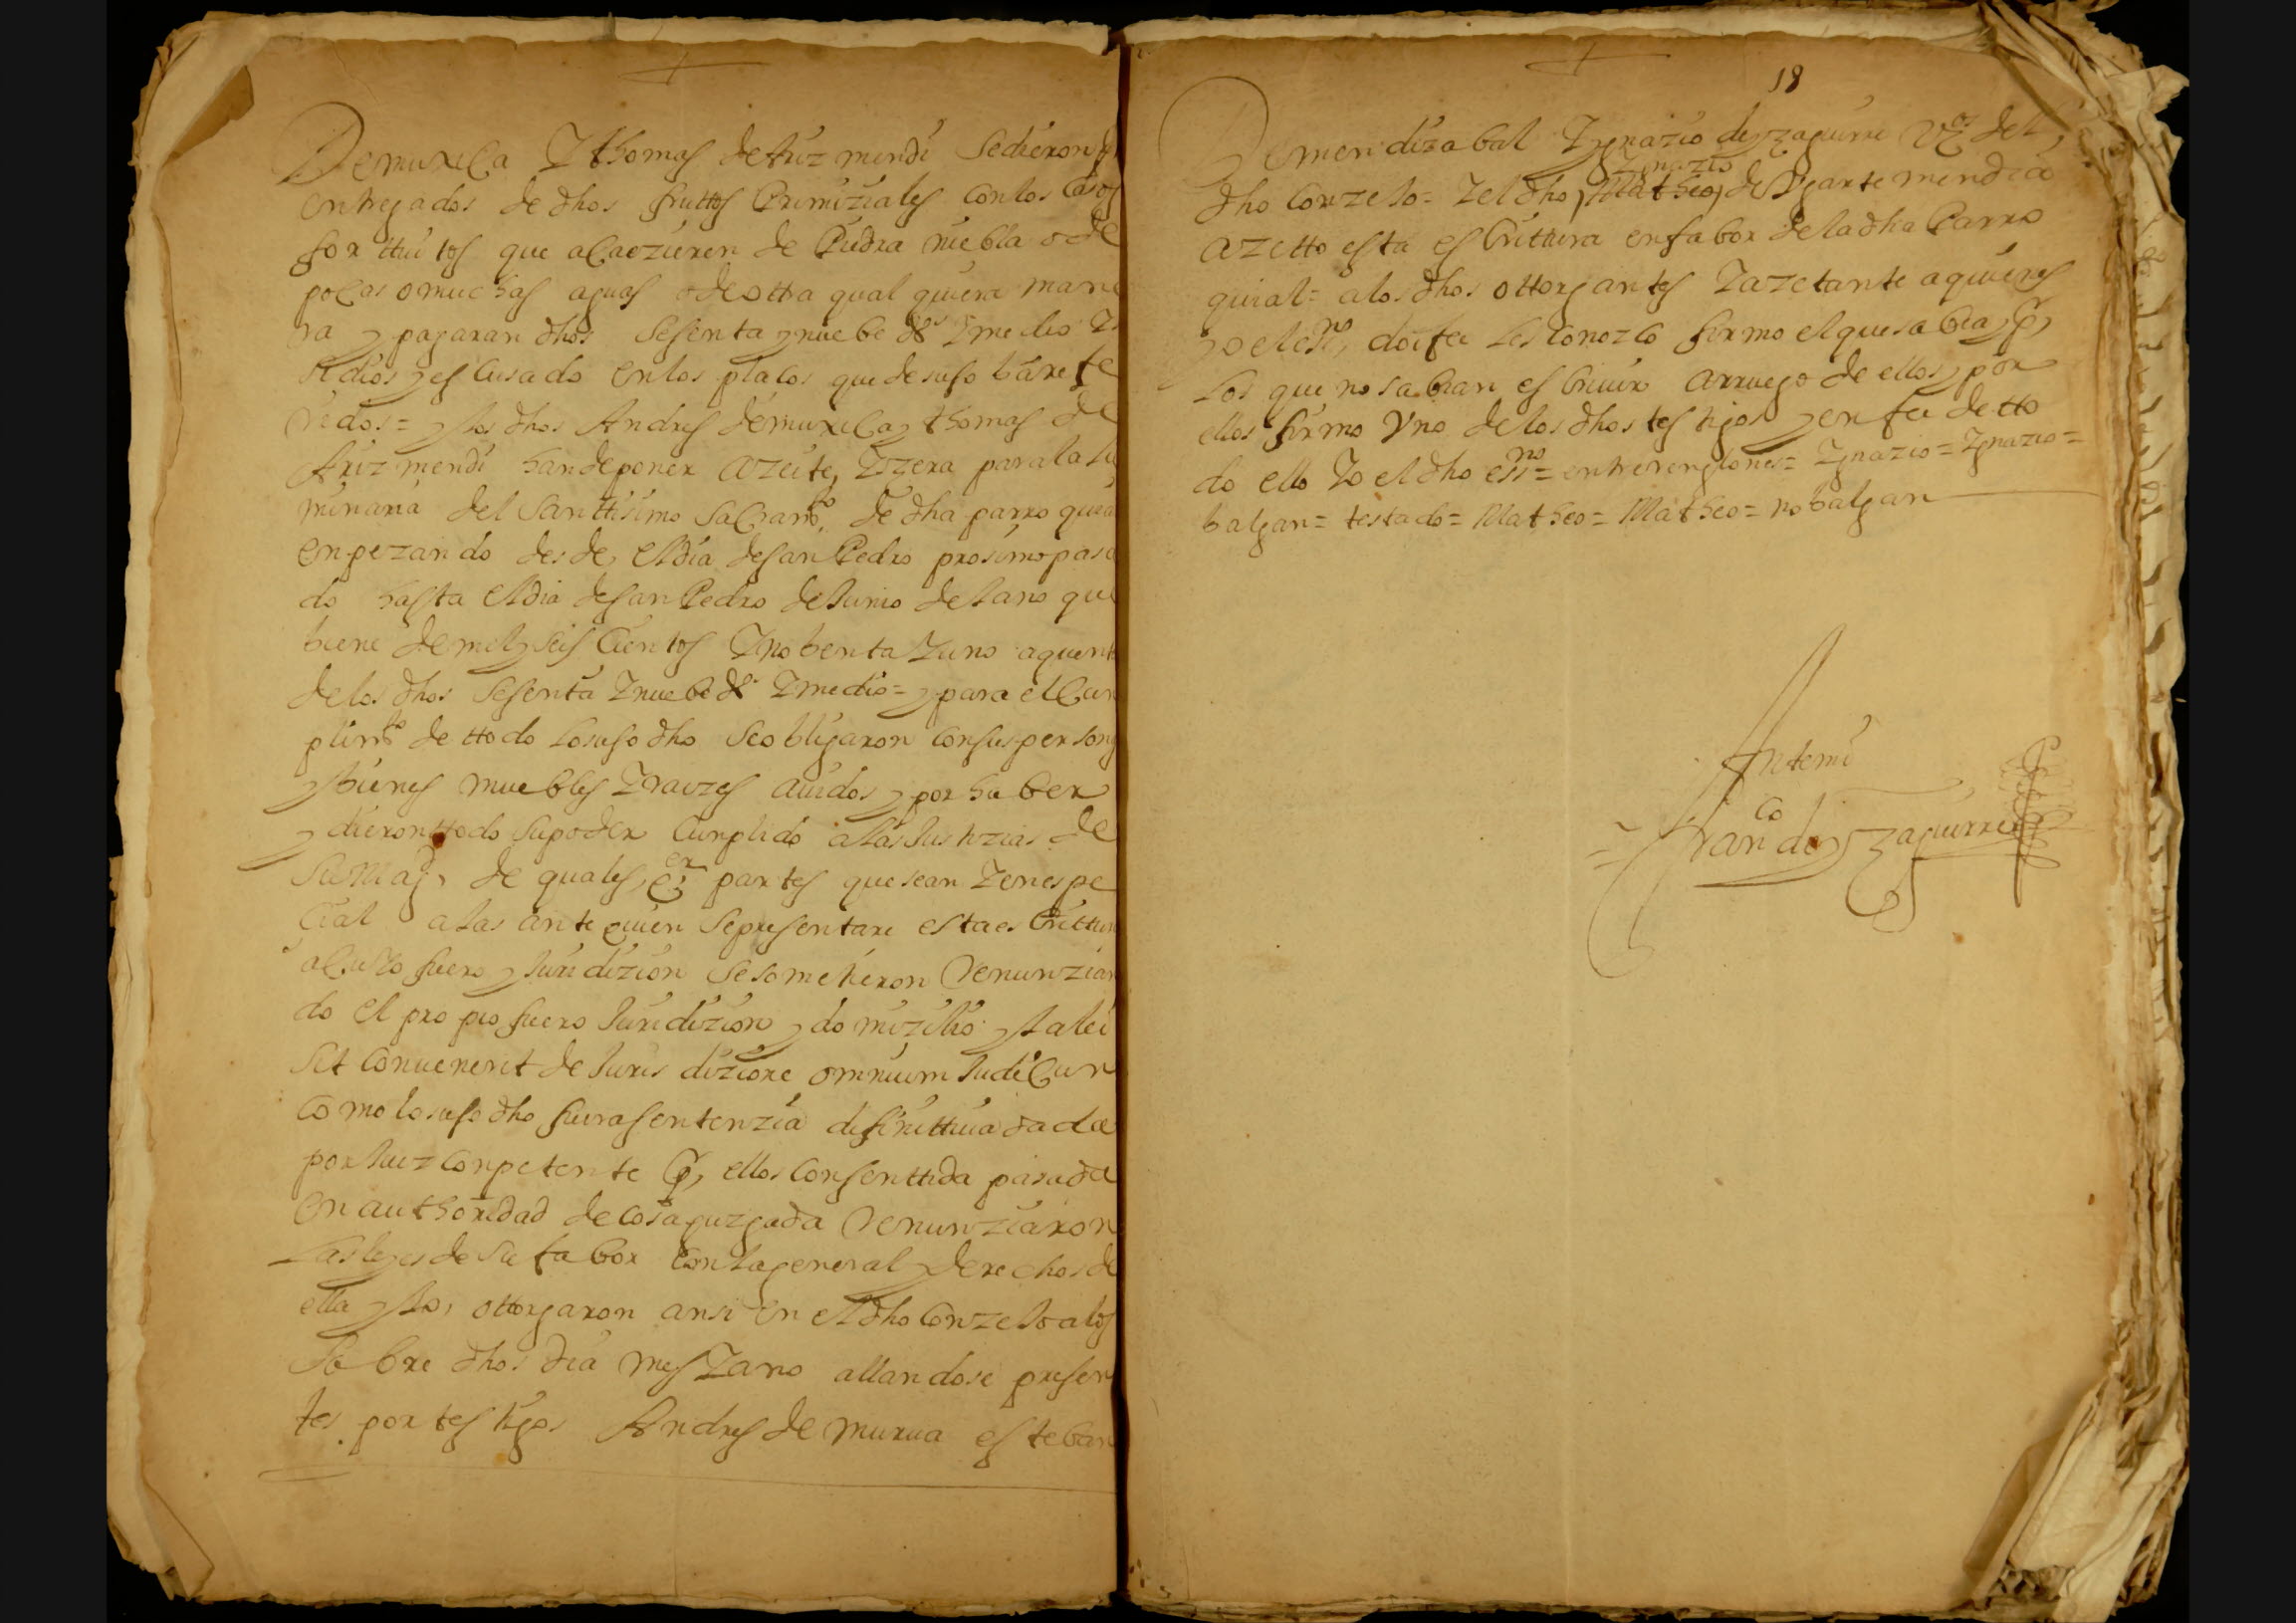 Demuxica Y thomas de Ariz mendi Sedieron
entregados de dhos fruttos Primiziales con los Casos
for ttui tos que acaezieren de Piedra niebla o de
pocas o muchas aguas o de otta qual quiera mane
ra y pagaran dhos Sesenta y nuebe ds Y medio
Adios y es cusado en los plaços que de suso ban refe
ridos = y los dhos Andres de muxica y thomas de
Ariz mendi han de poner azeite Y zera para la lu
minaria del Santtisimo Sacramto de dha parro quia
enpezando desde el dia de san Pedro prosimo pasa
do hasta el dia de san Pedro de Junio del ano que
biene de mil y seis Cientos Y nobenta Y uno a quenta
de los dhos Sesenta Y nuebe ds Y medio = y para el Cun
plimto de ttodo lo suso dho se obligaron con sus personas
y bienes muebles Y raizes auidos y por haber
y dieron ttodo su poder Cunplido a las Justizias de
su Magd de quales quier partes que sean Y en espe
cial a las ante quien se presentare esta es crittura
a cuio fuero y Juridizion se sometieron Renunzian
do el propio fuero Juridizion y do mizilio y la lei
sit convenerit de Juris dizione omnium Judicun
Como lo suso dho fuera sentenzia difinittiua dada
por Juez conpetente Y por ellos consenttida pasada
en authoridad de cosa juzgada Renunziaron
las leyes de su fabor con la general y derechos de
ella y lo ottorgaron ansi en el dho Conzejo a los
Sobre dhos dia mes Y ano allandose presen
tes por testigos Andres de murua esteban
18
De mendizabal Ygnazio de yzaguirre vzos del
Ygnazio
dho Conzejo = Y el dho Matheo de Ugarte mendia
azetto esta es crittura en fabor de la dha Parro
quial = a los dhos ottorgantes Y azetante a quienes
yo el essno doi fee les conozco firmo el que sabia y por
los que no sabian es criuir a rruego de ellos y por
ellos firmo Vno de los dhos testigos y en fee de tto
do ello Yo el dho essno = entre renglones = Ygnazio = Ygnazio =
balgan = testado = Matheo = Matheo = no balgan
Antemi
Franco de Yzaguirre